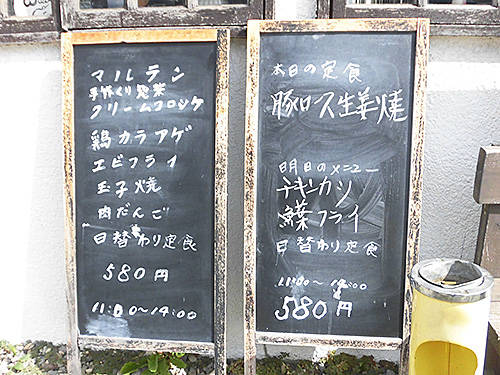 マルテン
手作り惣菜
クリームコロッケ
鶏カラアゲ
エビフライ
玉子焼
肉だんご
日替わり定食
580円
11:00〜14:00
本日の定食
豚ロース生姜焼
明日のメニュー
チキンカツ
鰈フライ
日替わり定食
11:00〜14:00
580円